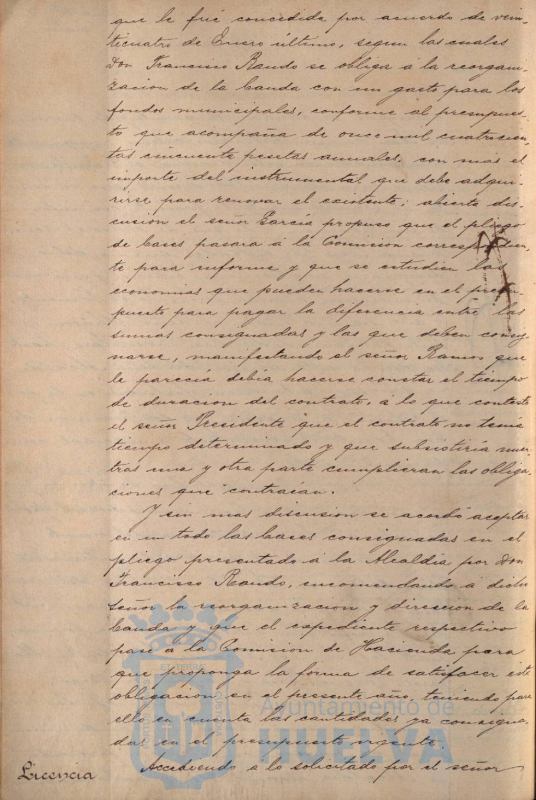 que le fué concedida por acuerdo de vein-
ticuatro de Enero último, segun las cuales
Don Francisco Rando se obliga á la reorgani-
zacion de la banda con un gasto para los
fondos municipales, conforme al presupues-
to que acompaña de once mil cuatrocien-
tas cincuenta pesetas anuales, con mas el
importe del instrumental que debe adqui-
rirse para renovar el existente; abierta dis-
cusion el señor Garcia propuso que el pliego
de bases pasara á la Comision correspondien-
te para informe y que se estudien las
economias que pueden hacerse en el presu-
puesto para pagar la diferencia entre las
sumas consignadas y las que deben consig-
narse, manifestando el señor Ramos que
le parecia debia hacerse constar el tiempo
de duracion del contrato, á lo que contestó
el señor Presidente que el contrato no tenia
tiempo determinado y que subsistiria mien-
tras una y otra parte cumplieran las obliga-
ciones que contraían.
Y sin mas discusion se acordó aceptar
en un todo las bases consignadas en el
pliego presentado á la Alcaldía por Don
Francisco Rando, encomendando á dicho
señor la reorganizacion y direccion de la
banda y que el expediente respectivo
pase á la Comision de Hacienda para
que proponga la forma de satisfacer esta
obligacion en el presente año, teniendo para
ello en cuenta las cantidades ya consigna-
das en el presupuesto vigente.
Licencia
Accediendo a lo solicitado por el señor
Ayuntamiento de
HUELVA